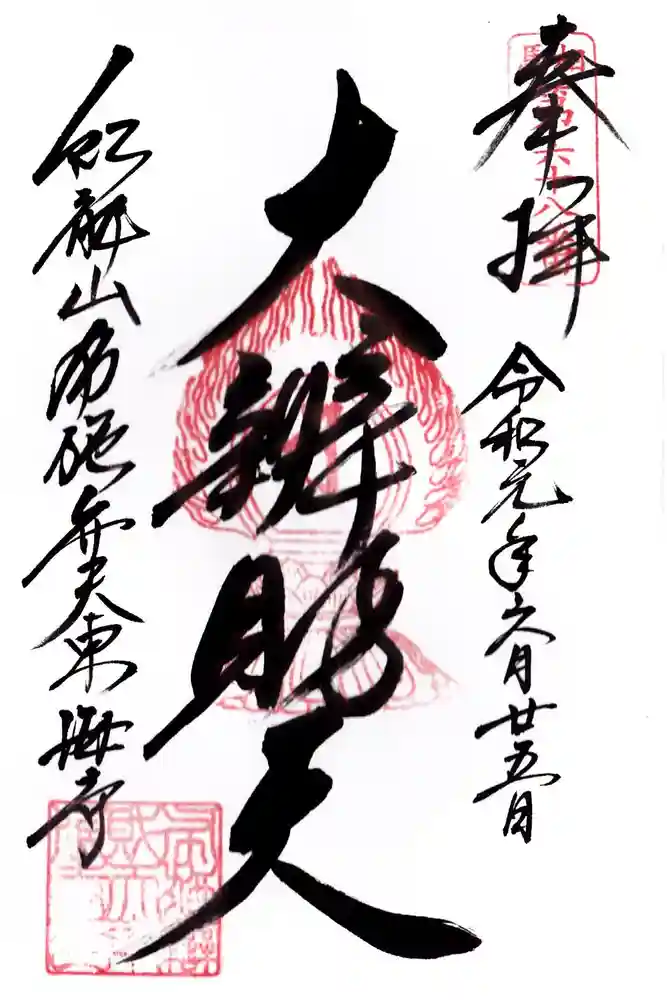 奉拝
令和元年六月廿五日
大辨財天
紅龍山布施弁天東海寺